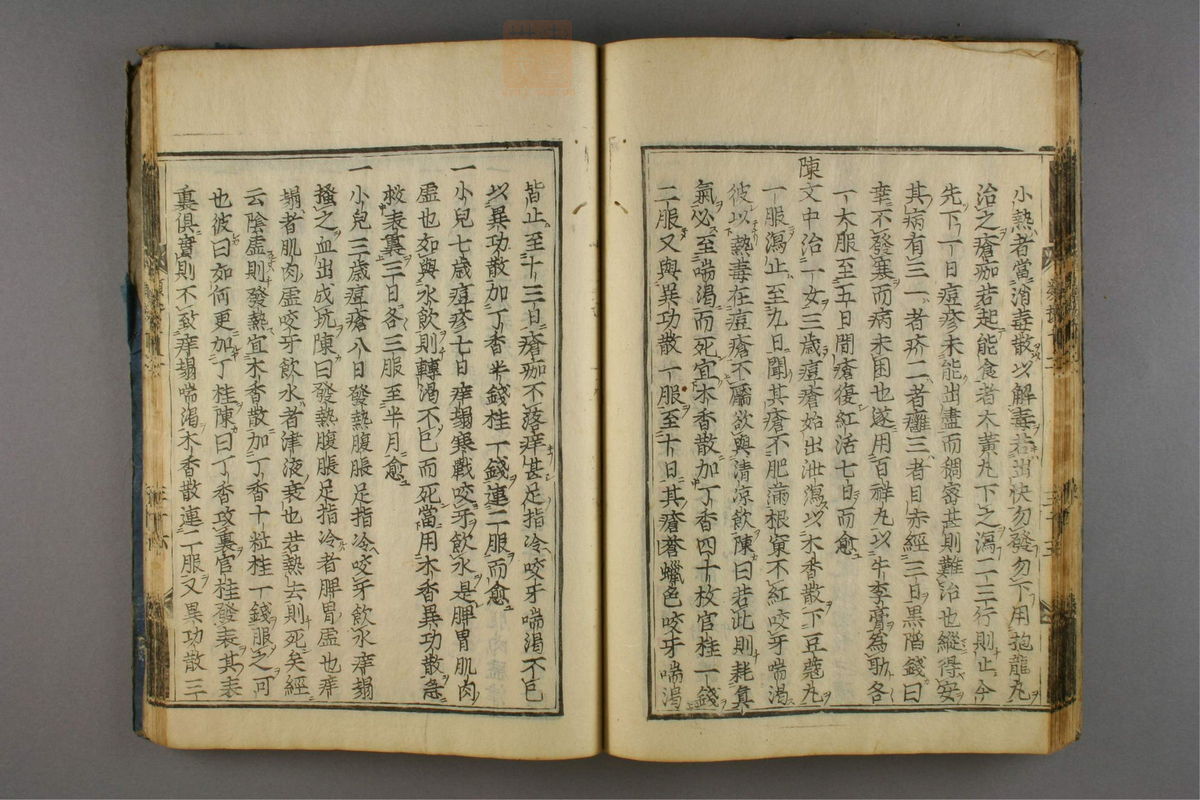 小熱者當消毒散以解毒若出快勿發勿下用抱龍丸
治之瘡痂若起能食者大黃丸下之瀉一二行則止今
先下一日痘疹未能出盡而稠密甚則難治也縱得安
其病有三一者疥二者癰三者目赤經三日黑陷錢曰
幸不發寒而病未困也遂用百祥丸以牛李膏為助各
一大服至五日間瘡復紅活七日而愈
陳文中治一女三歲痘瘡始出泄瀉以木香散下豆蔻丸
一服瀉止至九日聞其瘡不肥滿根窠不紅咬牙喘渴
彼以熱毒在痘瘡不靨欲與清涼飲陳曰若此則耗真
氣必至喘渴而死宜木香散加丁香四十枚官桂一錢
二服又與異功散一服至十日其瘡蒼蠟色咬牙喘渴
皆止至十三日瘡痂不落痒甚足指冷咬牙喘渴不已
以異功散加丁香半錢桂一錢連二服而愈
一小兒七歲痘疹七日痒塌寒戰咬牙飲水是脾胃肌肉
虛也如與水飲則轉渴不已而死當用木香異功散急
救表裏二日各三服至半月愈
一小兒三歲痘瘡八日發熱腹脹足指冷咬牙飲水痒塌
搔之血出成坑陳曰發熱腹脹足指冷者脾胃虛也痒
塌者肌肉虛咬牙飲水者津液衰也若熱去則死矣經
云陰虛則發熱宜木香散加丁香十粒桂一錢服之可
也彼曰如何更加丁桂陳曰丁香攻裏官桂發表其表
裏俱實則不致痒塌喘渴木香散連二服又異功散三